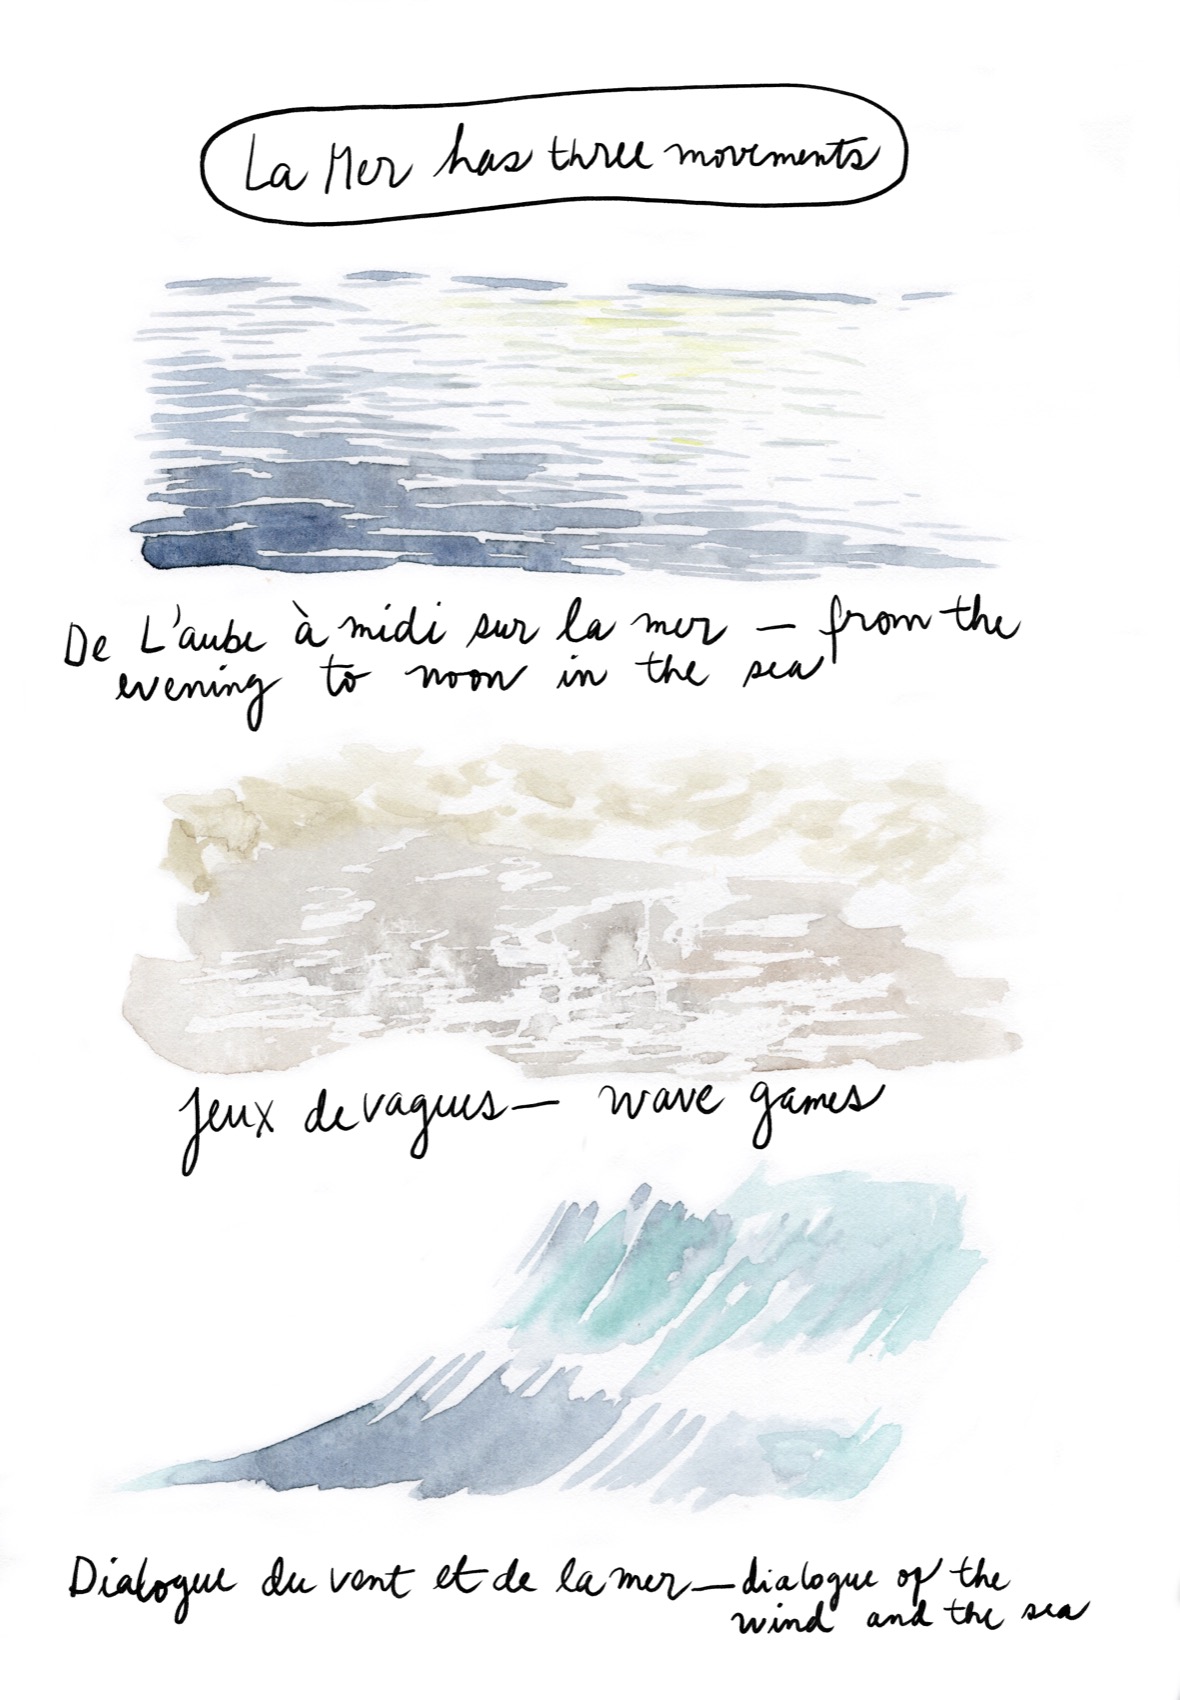 La Mer has three movements
De L'aube à midi sur la mer — from the
evening to noon in the sea
Jeux de vagues — wave games
Dialogue du vent et de la mer — dialogue of the
wind and the sea